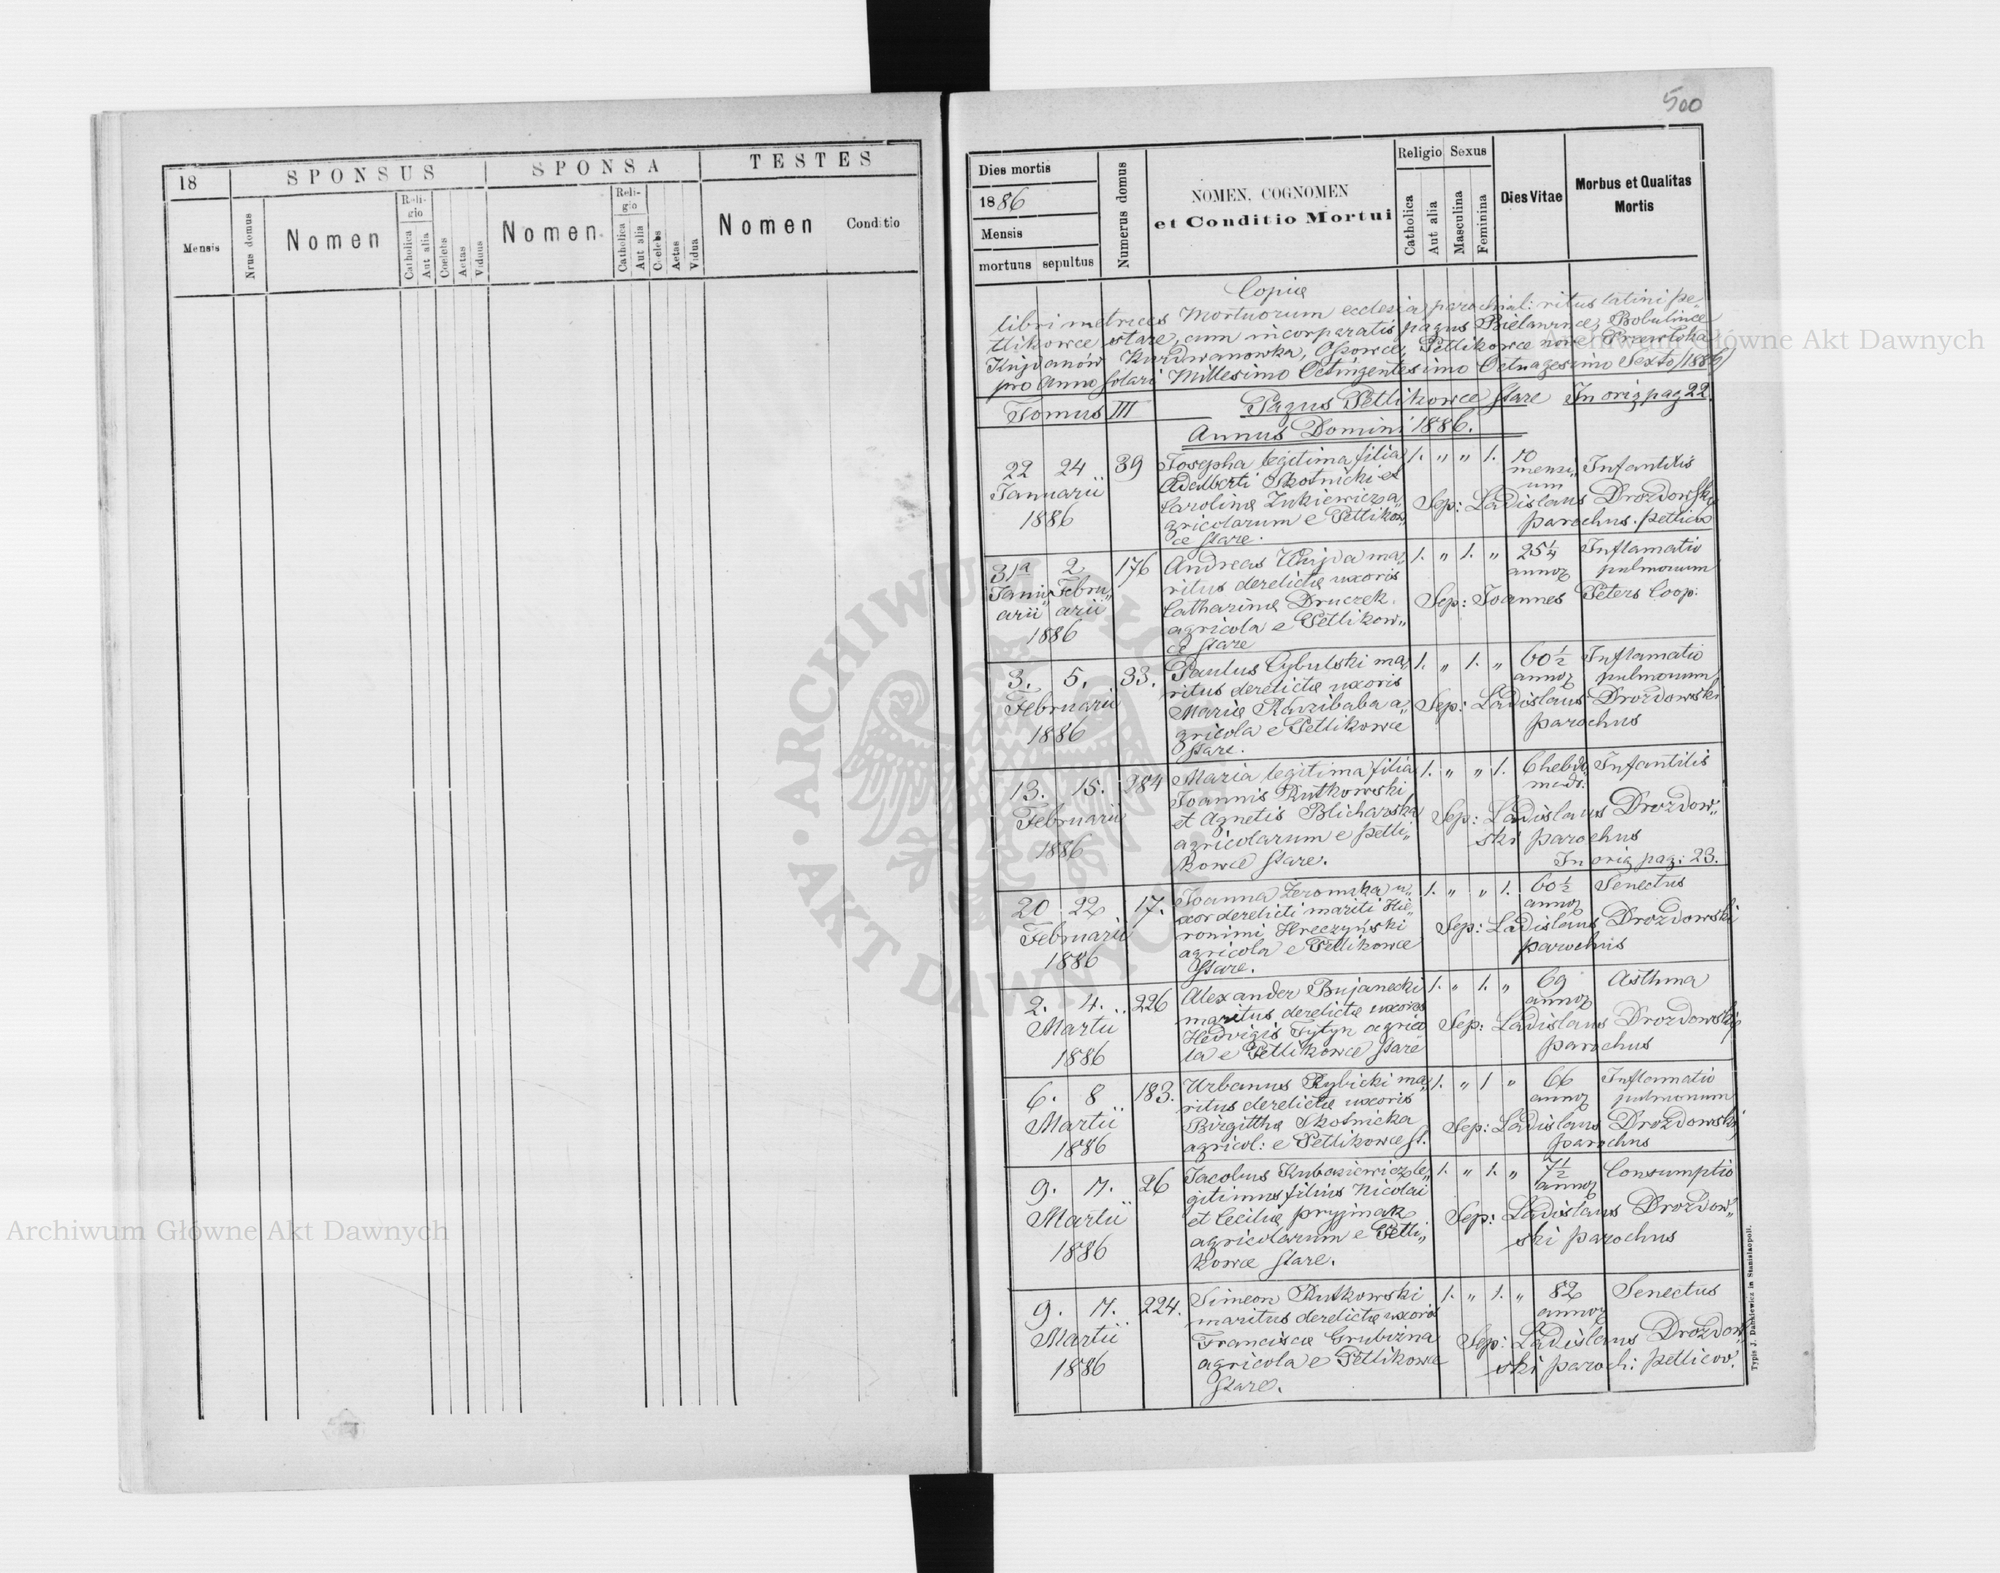 500
18 SPONSUS SPONSA TESTES
Mensis Nrus domus Nomen Religio Catholica Aut alia Coelebs Aetas Viduus Nomen Religio Catholica Aut alia Coelebs Aetas Vidua Nomen Conditio
Dies mortis
1886
Mensis
mortuus sepultus
Numerus domus
NOMEN, COGNOMEN
et Conditio Mortui
Religio Sexus
Catholica Aut alia Masculina Feminina
Dies Vitae
Morbus et Qualitas
Mortis
Copia
libri metrices Mortuorum ecclesia parochial: ritus latini Pe„
tlikowce stare, cum incorporatis pagus Bielawince, Bobulince
Kujdanów Kurdwanowka, Ossowce, Petlikowce nowe
pro Anno Solari Millesimo Octingentesimo Octuagesimo Sexto (1886)
Tomus III Pagus Petlikowce stare In orig pag 22.
Annus Domini 1886.
22 24 39 Josepha legitima filia 1. „ „ 1. 10 Infantilis
Januarii Adalberti Skotnicki et mensi„
1886 Carolina Zukiewicz a„ um
gricolarum e Petlikow„ Sep: Ladislaus Drozdowski
ce stare. parochus
31a 2 176 Andreas Kujda ma„ 1. „ 1. „ 25¼ Inflamatio
Janu„ Febru„ ritus derelictæ uxoris annor pulmonum
arii arii Catharinæ Druczek Sep: Joannes Peters Coop.
1886 agricola e Petlikow„
ce stare
3. 5. 33. Paulus Cybulski ma„ 1. „ 1. „ 60½ Inflamatio
Februarii ritus derelictæ uxoris annor pulmonum
1886 Mariæ Kavzibaba a„ Sep: Ladislaus Drozdowski
gricola e Petlikowce parochus
stare.
13. 15. 284 Maria legitima filia 1. „ „ 1. 6 hebdo„ Infantilis
Februarii Joannis Rutkowski mad.
1886 et Agnetis Blicharska Sep: Ladislaus Drozdow„
agricolarum e Petli„ ski parochus
kowce stare. In orig pag: 23.
20 22 17. Joanna Zeromska u„ 1. „ „ 1. 60½ Senectus
Februarii xor derelicti mariti Hie„ annor
1886 ronimi Hreczynski Sep: Ladislaus Drozdowski
agricola e Petlikowce parochus
stare.
2. 4. 226 Alexander Bujanecki 1. „ 1. „ 69 Asthma
Martii maritus derelictæ uxoris annor
1886 Hedvigis Tytyn agrico Sep: Ladislaus Drozdowski
la e Petlikowce stare parochus
6. 8 183. Urbanus Rybicki ma„ 1. „ 1 „ 66 Inflamatio
Martii ritus derelictæ uxoris annor pulmonum
1886 Birgittha Skotnicka Sep: Ladislaus Drozdowski
agricol: e Petlikowce st. parochus
9. 11. 26 Jacobus Kubasiewicz le„ 1. „ 1. „ Consumptio
Martii gitimus filius Nicolai annor
1886 et Cecilia pryjmak Sep: Ladislaus Drozdow„
agricolarum e Petli„ ski parochus
kowce stare.
9. 11. 224. Simeon Rutkowski 1. „ 1. „ 82 Senectus
Martii maritus derelictæ uxoris annor
1886 Franciscæ Grubizna Sep: Ladislaus Drozdow„
agricola e Petlikowce ski paroch: petlicov.
stare.
Typis J. Dankiewicz in Stanislaopoli.
Archiwum Główne Akt Dawnych
Archiwum Główne Akt Dawnych
ARCHIWUM
AKT DAWNYCH